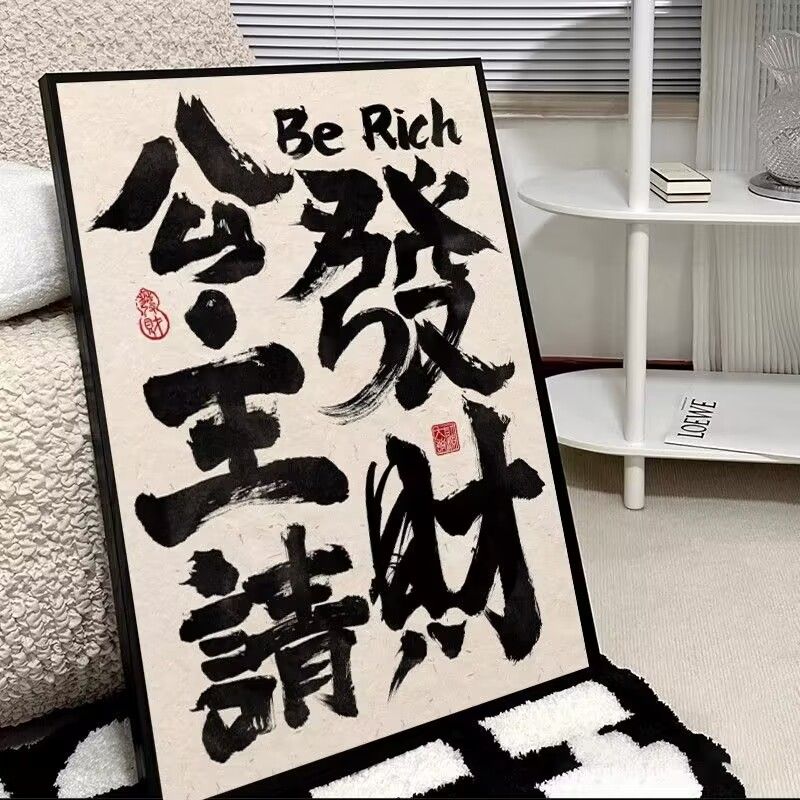 Be Rich
公主請
發財
發財
LOEWE